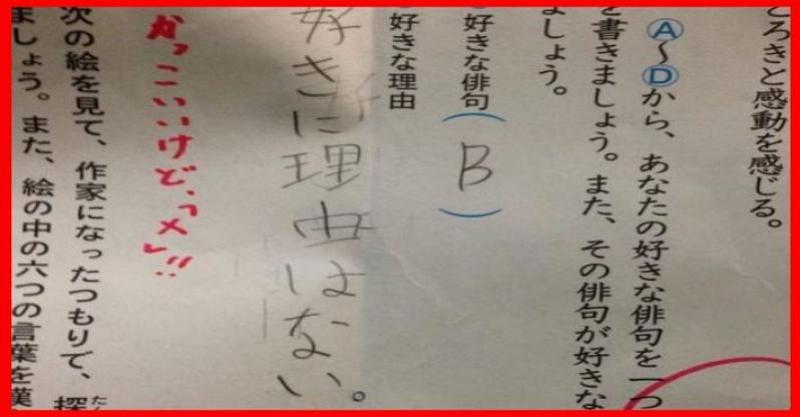 ろきと感動を感じる。
Ⓐ〜Ⓓから、あなたの好きな俳句を一つ
を書きましょう。また、その俳句が好きな
ましょう。
好きな俳句（B）
好きな理由
好きに理由はない。
かっこいいけど、「メ」!!
次の絵を見て、作家になったつもりで、探
ましょう。また、絵の中の六つの言葉を漢